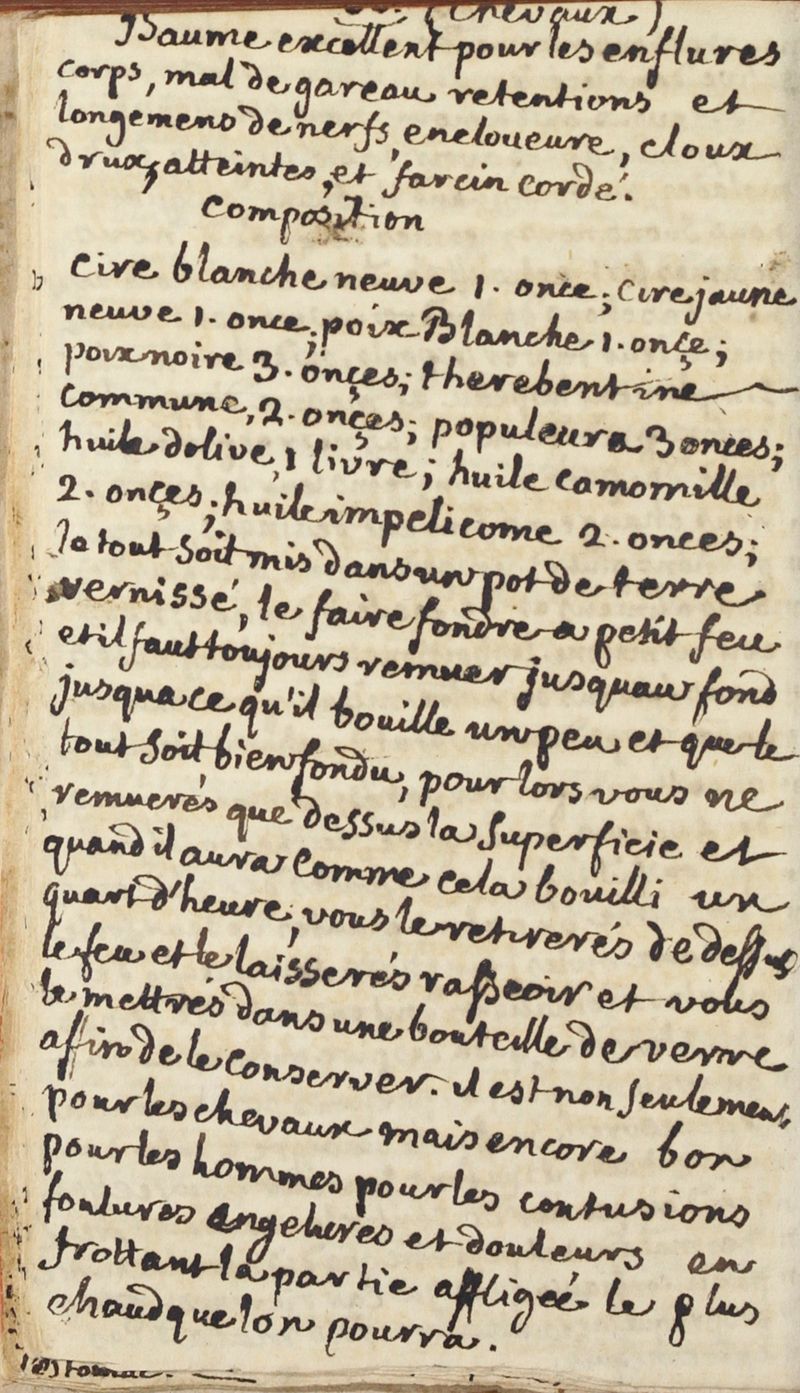 (Chevaux)
Baume excellent pour les enflures
corps, mal de gareau retentions et
longemens de nerfs, encloueure, cloux
drux, atteintes, et farcin cordé.
Composition
Cire blanche neuve 1. once; Cire jaune
neuve 1. once; poix Blanche 1. onçe;
poix noire 3. onçes; therebentine
commune, 2. onçes; populeum 3 onces;
huile dolive, 1 livre; huile camomille
2. onçes; huile impelicome 2. onces;
le tout soit mis dans un pot de terre
vernissé, le faire fondre a petit feu
et il faut toujours remuer jusquau fond
jusqua ce qu'il bouille un peu et que le
tout soit bien fondu, pour lors vous ne
remuerés que dessus la superficie et
quand il aura comme cela bouilli un
quart d'heure, vous le retirerés de dessus
le feu et le laisserés rasseoir et vous
le mettrés dans une bouteille de verre
afin de le conserver. il est non seulement
pour les chevaux mais encore bon
pour les hommes pour les contusions
foulures engelures et douleurs en
frottant la partie affligeé le plus
chaud que lon pourra.